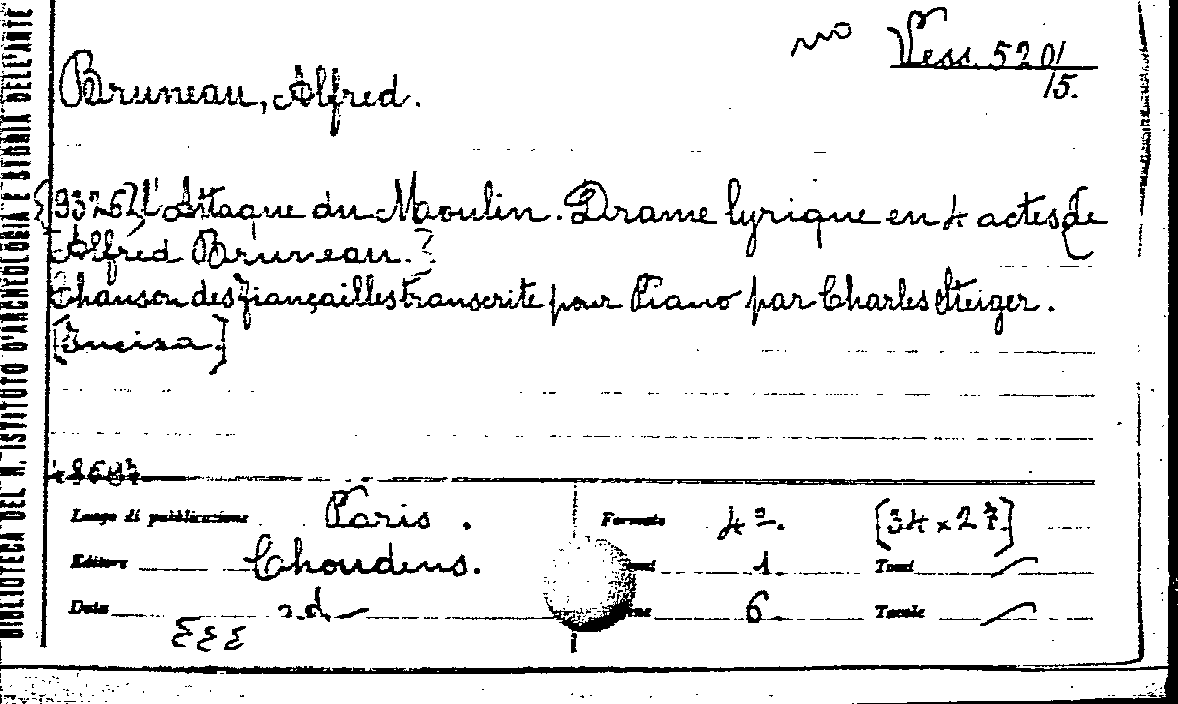 Vess. 5201
15.
Bruneau, Alfred.
[9326] l'Attaque du Moulin. Drame lyrique en 4 actes [de
Alfred Bruneau.]
Chanson des fiançailles transcrite pour Piano par Charles Steiger.
[Incisa.]
Luogo di pubblicazione Paris. Formato 4º. [34 x 27]
Editore Choudens. 1. Tomi
Data s.d. 6. Tavole
BIBLIOTECA DEL R. ISTITUTO D'ARCHEOLOGIA E STORIA DELL'ARTE